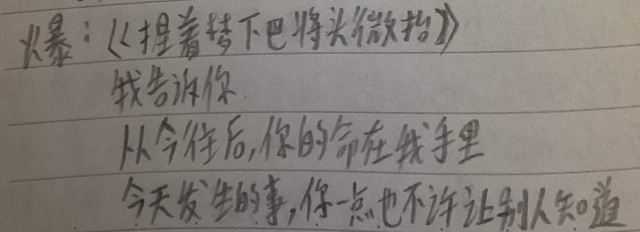 爆：《捏着梦下巴将头微抬》
我告诉你
从今往后，你的命在我手里
今天发生的事，你一点也不许让别人知道